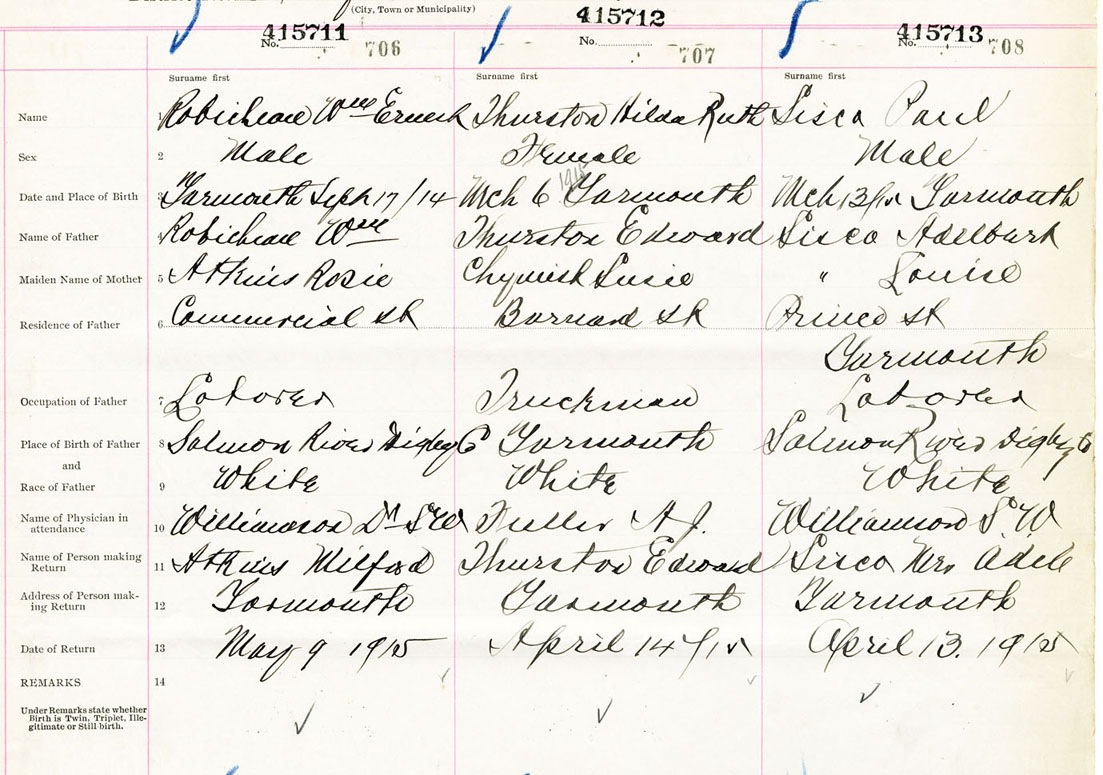 (City, Town or Municipality)
415711 415712 415713
No. 706 No. 707 No. 708
Surname first Surname first Surname first
Name 1 Robicheau Wm Ernest Thurston Hilda Ruth Sisco Paul
Sex 2 Male Female Male
1915
Date and Place of Birth 3 Yarmouth Sept 17/14 Mch 6 Yarmouth Mch 13/15 Yarmouth
Name of Father 4 Robicheau Wm Thurston Edward Sisco Adelburt
Maiden Name of Mother 5 Atkins Rosie Susie " Louise
Residence of Father 6 Commercial St Barnard St Prince St
Yarmouth
Occupation of Father 7 Laborer Truckman Laborer
Place of Birth of Father 8 Salmon River Digby C Yarmouth Salmon River Digby C
and
Race of Father 9 White White White
Name of Physician in
attendance 10 Williamson Dr S W Fuller A. J. Williamson S W
Name of Person making
Return 11 Atkins Milford Thurston Edward Sisco Mrs Adele
Address of Person mak-
ing Return 12 Yarmouth Yarmouth Yarmouth
Date of Return 13 May 9 1915 April 14/15 April 13. 1915
REMARKS 14
Under Remarks state whether
Birth is Twin, Triplet, Ille-
gitimate or Still birth.